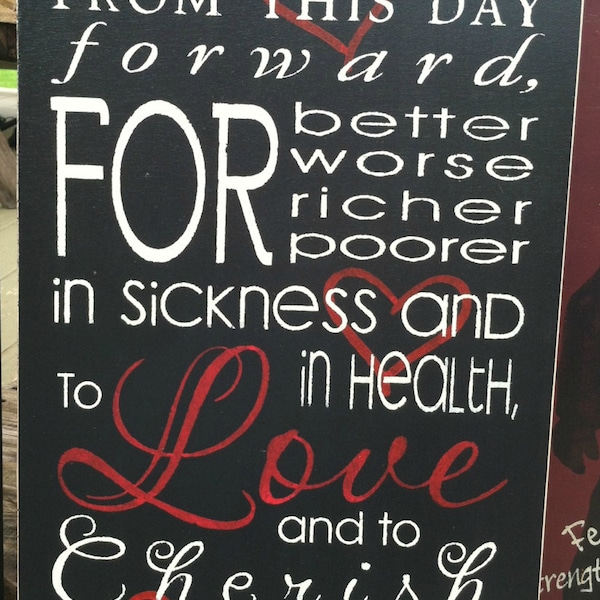 FROM THIS DAY
forward,
FOR better
worse
richer
poorer
in sickness and
in Health,
To Love
and to
Cherish
Fe
trength